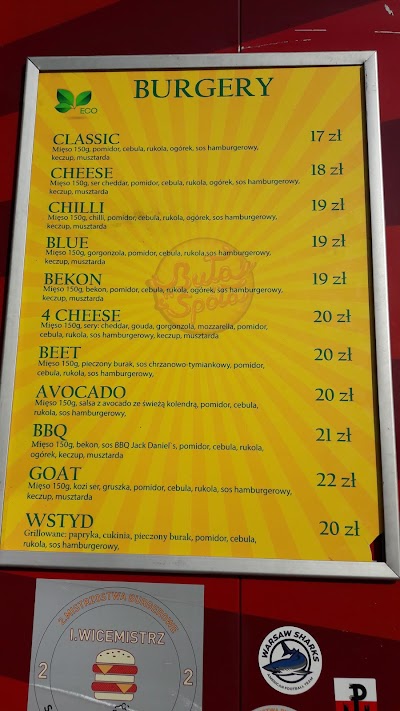 BURGERY
ECO
CLASSIC 17 zł
Mięso 150g, pomidor, cebula, rukola, ogórek, sos hamburgerowy,
keczup, musztarda
CHEESE 18 zł
Mięso 150g, ser cheddar, pomidor, cebula, rukola, ogórek, sos hamburgerowy,
keczup, musztarda
CHILLI 19 zł
Mięso 150g, chilli, pomidor, cebula, rukola, ogórek, sos hamburgerowy,
keczup, musztarda
BLUE 19 zł
Mięso 150g, gorgonzola, pomidor, cebula, rukola,sos hamburgerowy,
keczup, musztarda
BEKON 19 zł
Mięso 150g, bekon, pomidor, cebula, rukola, ogórek, sos hamburgerowy,
keczup, musztarda
4 CHEESE 20 zł
Mięso 150g, sery: cheddar, gouda, gorgonzola, mozzarella, pomidor,
cebula, rukola, sos hamburgerowy, keczup, musztarda
BEET 20 zł
Mięso 150g, pieczony burak, sos chrzanowo-tymiankowy, pomidor,
cebula, rukola, sos hamburgerowy,
AVOCADO 20 zł
Mięso 150g, salsa z avocado ze świeżą kolendrą, pomidor, cebula,
rukola, sos hamburgerowy,
BBQ 21 zł
Mięso 150g, bekon, sos BBQ Jack Daniel`s, pomidor, cebula, rukola,
ogórek, keczup, musztarda
GOAT 22 zł
Mięso 150g, kozi ser, gruszka, pomidor, cebula, rukola, sos hamburgerowy,
keczup, musztarda
WSTYD 20 zł
Grillowane: papryka, cukinia, pieczony burak, pomidor, cebula,
rukola, sos hamburgerowy,
2.MISTRZOSTWA BURGEROWE
I.WICEMISTRZ
2 2
WARSAW SHARKS
AMERICAN FOOTBALL TEAM